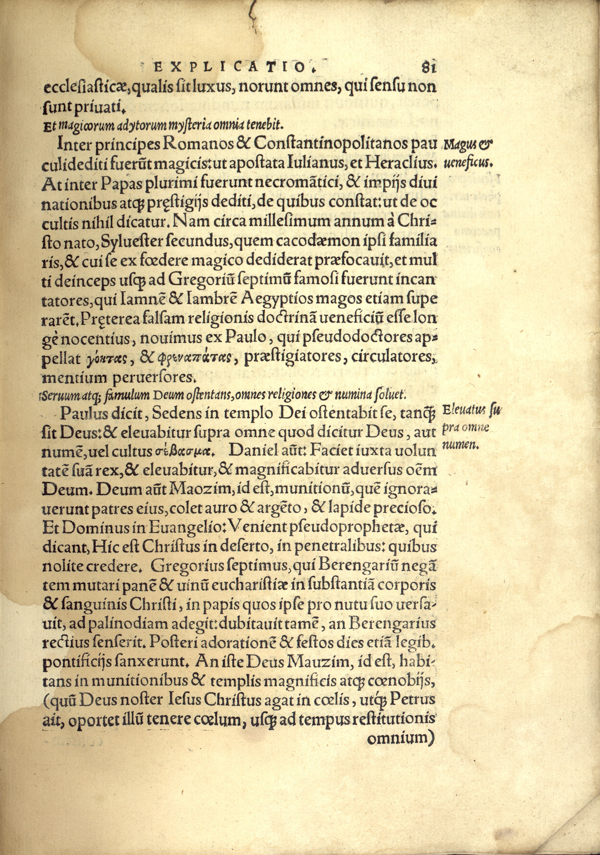 EXPLICATIO. 81
ecclesiasticæ, qualis sit luxus, norunt omnes, qui sensu non
sunt priuati.
Et magicorum adytorum mysteria omnia tenebit.
Inter principes Romanos & Constantinopolitanos pau
culi dediti fuerũt magicis: ut apostata Iulianus, et Heraclius.
Magus &
ueneficus.
At inter Papas plurimi fuerunt necromãtici, & impijs diui
nationibus atq; pręstigijs dediti, de quibus constat: ut de oc
cultis nihil dicatur. Nam circa millesimum annum à Chri-
sto nato, Syluester secundus, quem cacodæmon ipsi familia
ris, & cui se ex fœdere magico dediderat præfocauit, et mul
ti deinceps usq; ad Gregoriũ septimũ famosi fuerunt incan
tatores, qui Iamnē & Iambrē Aegyptios magos etiam supe
rarēt, Pręterea falsam religionis doctrinã ueneficiũ esse lon
gè nocentius, nouimus ex Paulo, qui pseudodoctores ap-
pellat γόητας, & φρεναπάτας, præstigiatores, circulatores,
mentium peruersores.
Seruum atq; famulum Deum ostentans, omnes religiones & numina soluet.
Paulus dicit, Sedens in templo Dei ostentabit se, tanq̃
sit Deus: & eleuabitur supra omne quod dicitur Deus, aut
numē, uel cultus σέβασμα. Daniel aũt: Faciet iuxta uolun
Eleuatus su
pra omne
numen.
tatē suã rex, & eleuabitur, & magnificabitur aduersus oēm
Deum. Deum aũt Maozim, id est, munitionũ, quē ignora-
uerunt patres eius, colet auro & argēto, & lapide precioso.
Et Dominus in Euangelio: Venient pseudoprophetæ, qui
dicant, Hic est Christus in deserto, in penetralibus: quibus
nolite credere. Gregorius septimus, qui Berengariũ negã
tem mutari panē & uinũ eucharistiæ in substantiã corporis
& sanguinis Christi, in papis quos ipse pro nutu suo uersa-
uit, ad palinodiam adegit: dubitauit tamē, an Berengarius
rectius senserit. Posteri adorationē & festos dies etiã legib.
pontificijs sanxerunt. An iste Deus Mauzim, id est, habi-
tans in munitionibus & templis magnificis atq; cœnobijs,
(quũ Deus noster Iesus Christus agat in cœlis, utq; Petrus
ait, oportet illũ tenere cœlum, usq; ad tempus restitutionis
omnium)